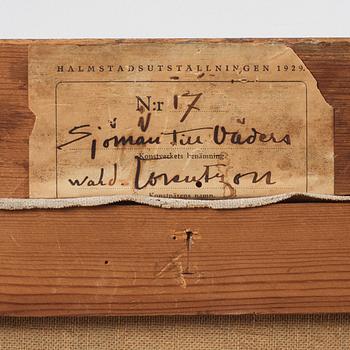 HALMSTADSUTSTÄLLNINGEN 1929.
N:r 17
Sjöman till Väders
Konstverkets benämning.
Wald. Lorentzon
Konstnärens namn.